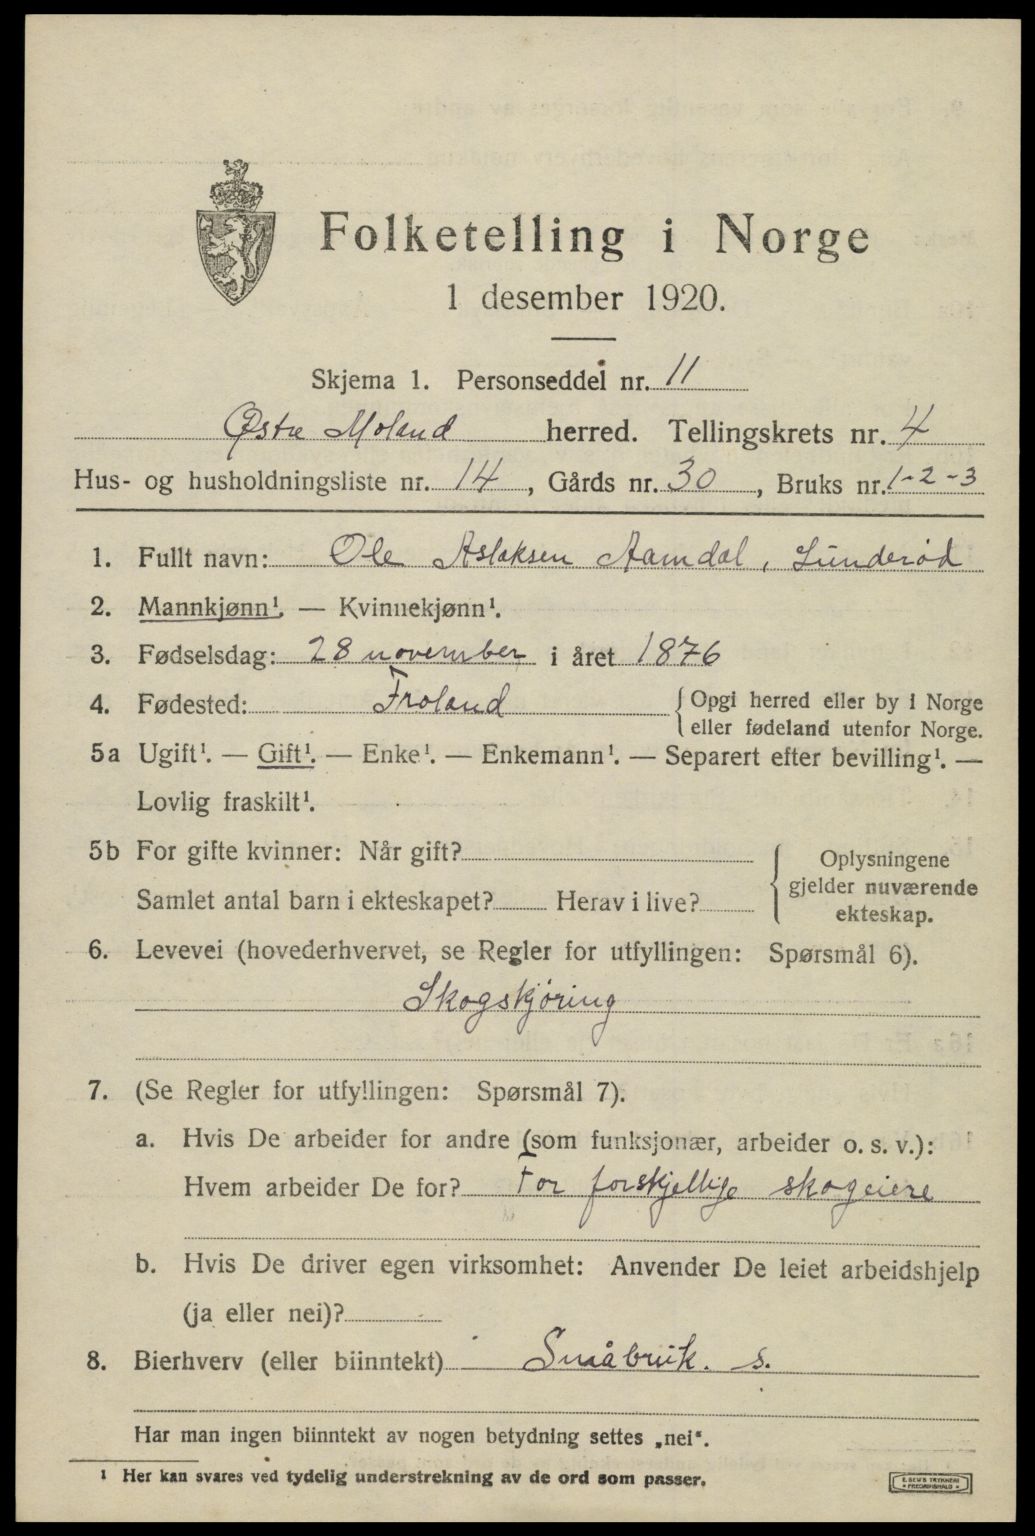 Folketelling i Norge
1 desember 1920.
Skjema 1. Personseddel nr. 11
Østre Moland herred. Tellingskrets nr. 4
Hus- og husholdningsliste nr. 14, Gårds nr. 30, Bruks nr. 1-2-3
1. Fullt navn: Ole Aslaksen Aamdal, Lunderød
2. Mannkjønn¹. — Kvinnekjønn¹.
3. Fødselsdag: 28 november i året 1876
4. Fødested: Froland { Opgi herred eller by i Norge
eller fødeland utenfor Norge.
5a Ugift¹. — Gift¹. — Enke¹. — Enkemann¹. — Separert efter bevilling¹. —
Lovlig fraskilt¹.
5b For gifte kvinner: Når gift?
Samlet antal barn i ekteskapet? Herav i live?
Oplysningene
gjelder nuværende
ekteskap.
6. Levevei (hovederhvervet, se Regler for utfyllingen: Spørsmål 6).
Skogskjøring
7. (Se Regler for utfyllingen: Spørsmål 7).
a. Hvis De arbeider for andre (som funksjonær, arbeider o. s. v.):
Hvem arbeider De for? For forskjellige skogeiere
b. Hvis De driver egen virksomhet: Anvender De leiet arbeidshjelp
(ja eller nei)?
8. Bierhverv (eller biinntekt) Småbruk. s.
Har man ingen biinntekt av nogen betydning settes „nei“.
¹ Her kan svares ved tydelig understrekning av de ord som passer.
E. SEM'S TRYKKERI
FREDRIKSHALD